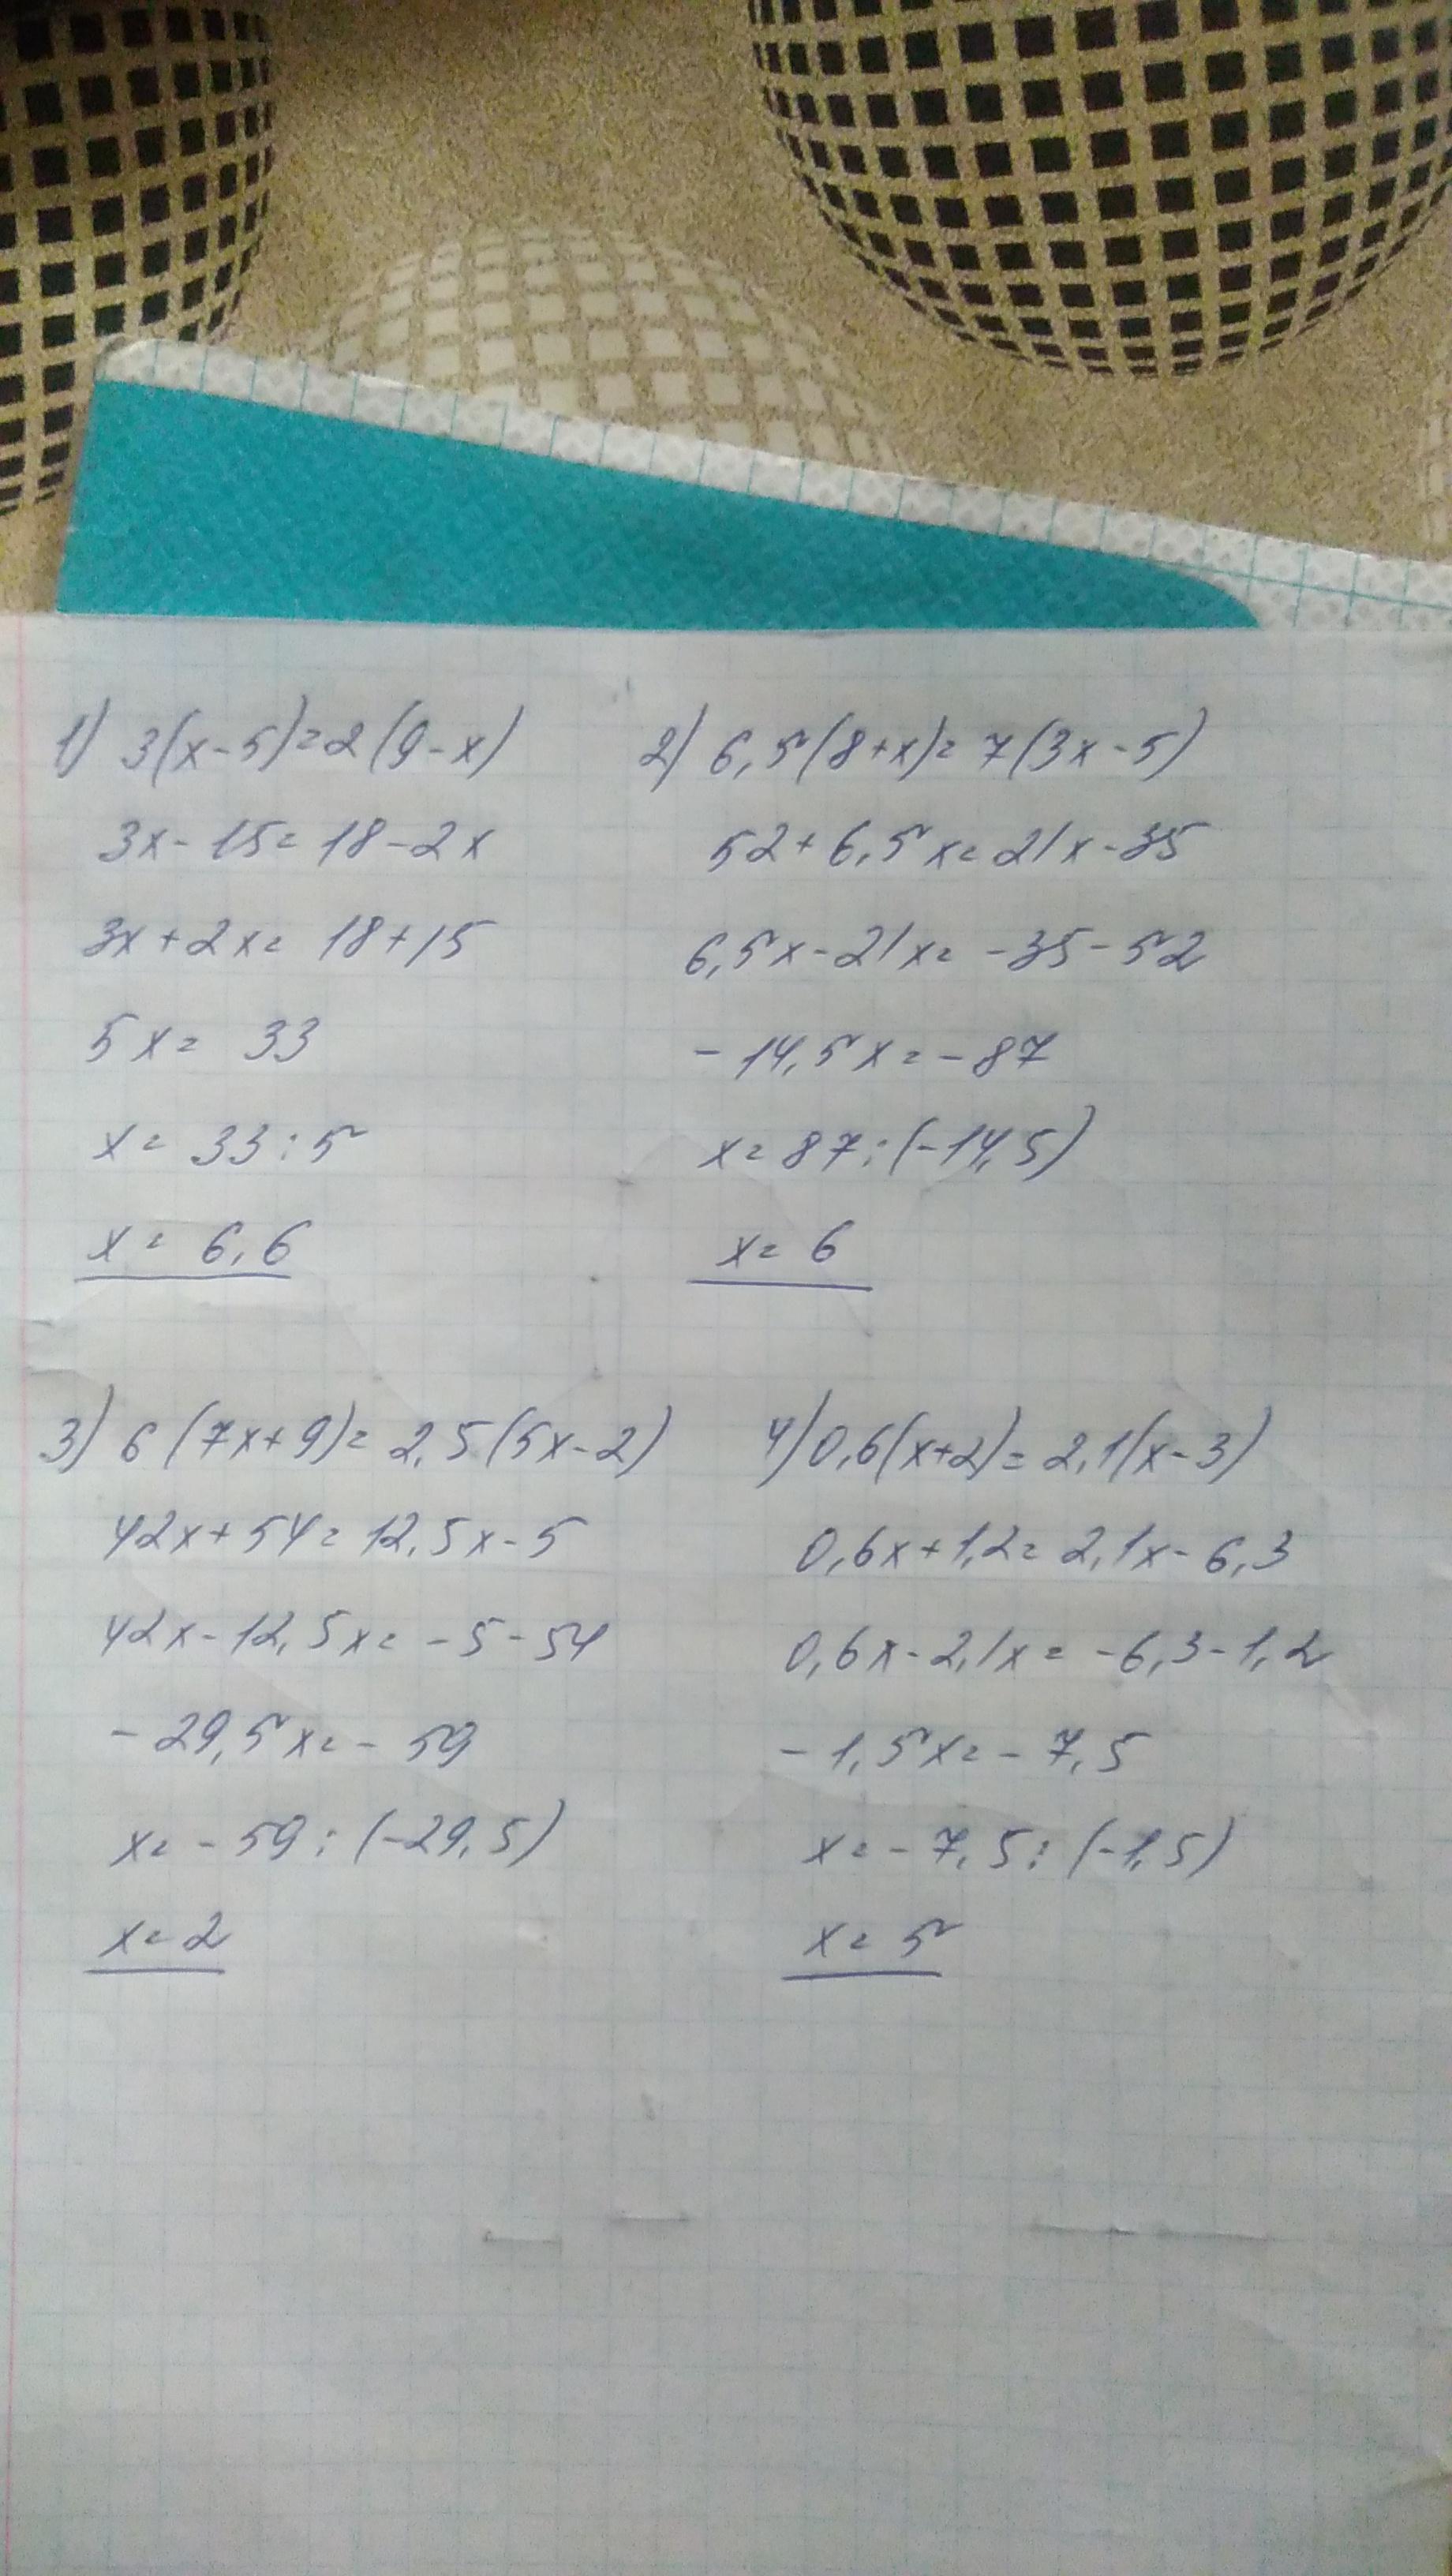 1) 3(x-5)=2(9-x)
3x-15=18-2x
3x+2x=18+15
5x=33
x=33:5
x=6,6
2) 6,5(8+x)=7(3x-5)
52+6,5x=21x-35
6,5x-21x=-35-52
-14,5x=-87
x=87:(-14,5)
x=6
3) 6(7x+9)=2,5(5x-2)
42x+54=12,5x-5
42x-12,5x=-5-54
-29,5x=-59
x=-59:(-29,5)
x=2
4) 0,6(x+2)=2,1(x-3)
0,6x+1,2=2,1x-6,3
0,6x-2,1x=-6,3-1,2
-1,5x=-7,5
x=-7,5:(-1,5)
x=5